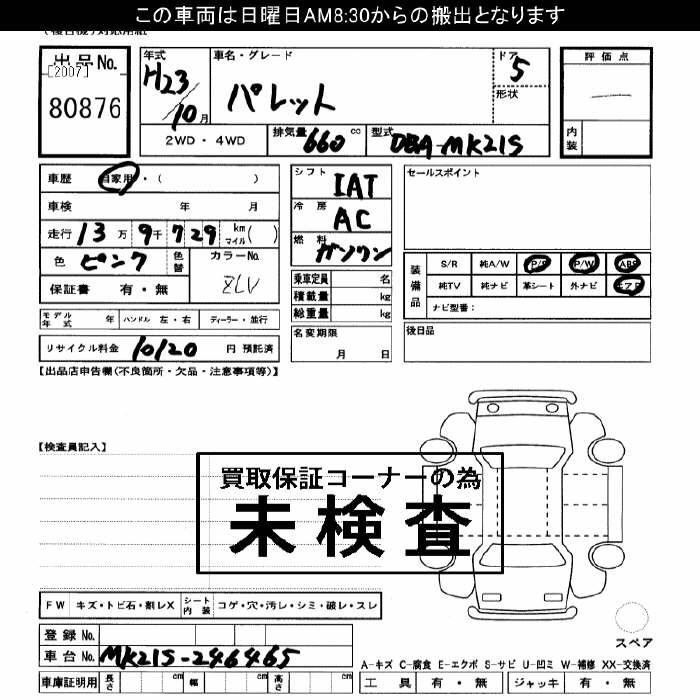 この車両は日曜日AM8:30からの搬出となります
出品No.
[2007]
80876
年式 H23/10月
車名・グレード パレット
ドア 5
形状
評価点
内装
2WD・4WD
排気量 660 cc
型式 DBA-MK21S
車歴 自家用・( )
車検 年 月
走行 13万9千729 km マイル( )
色 ピンク 色替
カラーNo. ZLV
保証書 有・無
シフト IAT
冷房 AC
燃料 ガソリン
乗車定員 名
積載量 kg
総重量 kg
セールスポイント
装備品
S/R 純A/W P/S P/W ABS
純TV 純ナビ 革シート 外ナビ エアB
ナビ型番:
モデル年式 年 ハンドル 左・右 ディーラー・並行
名変期限 月 日
後日品
リサイクル料金 10120 円 預託済
【出品店申告欄(不良箇所・欠品・注意事項等)】
【検査員記入】
買取保証コーナーの為
未検査
FW キズ・トビ石・割レX シート内装 コゲ・穴・汚レ・シミ・破レ・スレ
スペア
登録No.
車台No. MK21S-246465
A-キズ C-腐食 E-エクボ S-サビ U-凹ミ W-補修 XX-交換済
車庫証明用 長さ cm 幅 cm 高さ cm
工具 有・無 ジャッキ 有・無